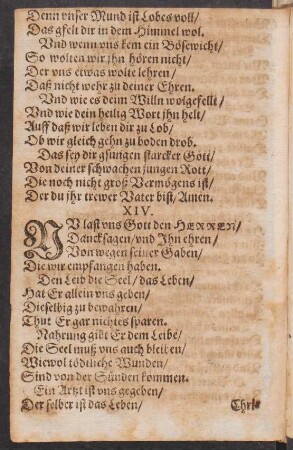 Denn vnser Mund ist Lobes voll/
Das gfelt dir in dem Himmel wol.
Vnd wenn vns kem ein Bösewicht/
So wolten wir jhn hören nicht/
Der vns etwas wolte lehren/
Daß nicht wehr zu deiner Ehren.
Vnd wie es deim Willn wolgefellt/
Vnd wie dein heilig Wort jhn helt/
Auff daß wir leben dir zu Lob/
Ob wir gleich gehn zu boden drob.
Das sey dir gsungen starcker Gott/
Von deiner schwachen jungen Rott/
Die noch nicht groß Vermögens ist/
Der du jhr trewer Vater bist/ Amen.
XIV.
NV last vns Gott den HERREN/
Dancksagen/ vnd Jhn ehren/
Von wegen seiner Gaben/
Die wir empfangen haben.
Den Leib die Seel/ das Leben/
Hat Er allein vns geben/
Dieselbig zu bewahren/
Thut Er gar nichtes sparen.
Nahrung gibt Er dem Leibe/
Die Seel muß vns auch bleiben/
Wiewol tödtliche Wunden/
Sind von der Sünden kommen.
Ein Artzt ist vns gegeben/
Der selber ist das Leben/
Chri⸗